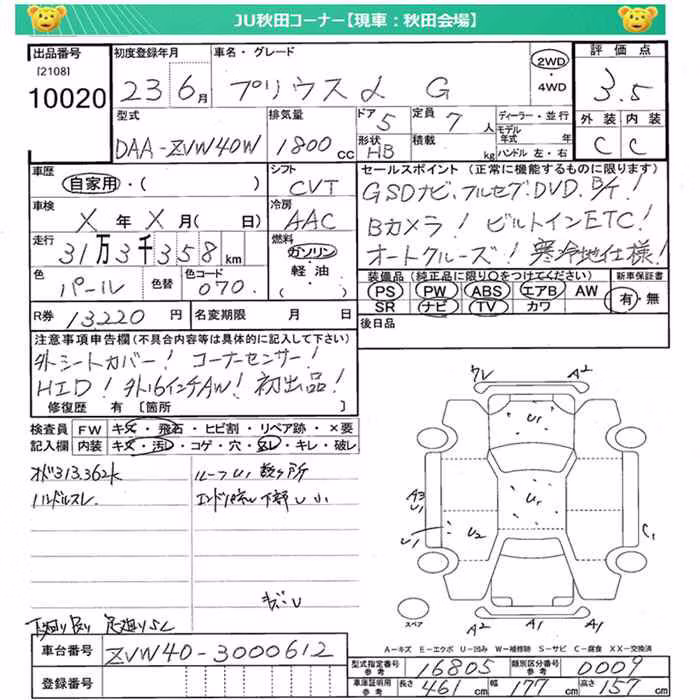 JU秋田コーナー【現車：秋田会場】
出品番号
[2108]
10020
初度登録年月
23 6月
車名・グレード
プリウスα G
2WD
・
4WD
評価点
3.5
外装 内装
C C
型式
DAA-ZVW40W
排気量
1800cc
ドア
5
形状
HB
定員
7人
積載
kg
ディーラー・並行
モデル年式 年
ハンドル 左・右
車歴
自家用・( )
シフト
CVT
車検
X年X月( 日)
冷房
AAC
走行
31万3千358km
燃料
ガソリン
・
軽油
・
( )
色
パール
色替
色コード
070
R券 13,220円
名変期限 月 日
セールスポイント (正常に機能するものに限ります)
GSDナビ、フルセグ、DVD、B/T！
Bカメラ！ ビルトインETC！
オートクルーズ！ 寒冷地仕様！
装備品(純正品に限り○をつけてください)
PS PW ABS エアB AW
SR ナビ TV カワ
新車保証書
有・無
後日品
注意事項申告欄(不具合内容等は具体的に記入して下さい)
外シートカバー！ コーナーセンサー！
HID！ 外16インチAW！ 初出品！
修復歴 有 [箇所 ]
検査員 FW キズ・飛石・ヒビ割・リペア跡・×要
記入欄 内装 キズ・汚レ・コゲ・穴・スレ・キレ・破レ
オド313,362k
ハンドルスレ
ルーフU1 数ヶ所
下部 U 小
キズ・U
下廻り 足廻りSら
A²
U₁
U₁
A3
U1
U₂
C₁
A2
A1
A1
スペア
A－キズ E－エクボ U－凹み W－補修跡 S－サビ C－腐食 XX－交換済
車台番号
ZVW40-3000612
登録番号
型式指定番号 参考 16805
類別区分番号 参考 0009
車庫証明用 参考 長さ 461 幅 177 高さ 157 cm